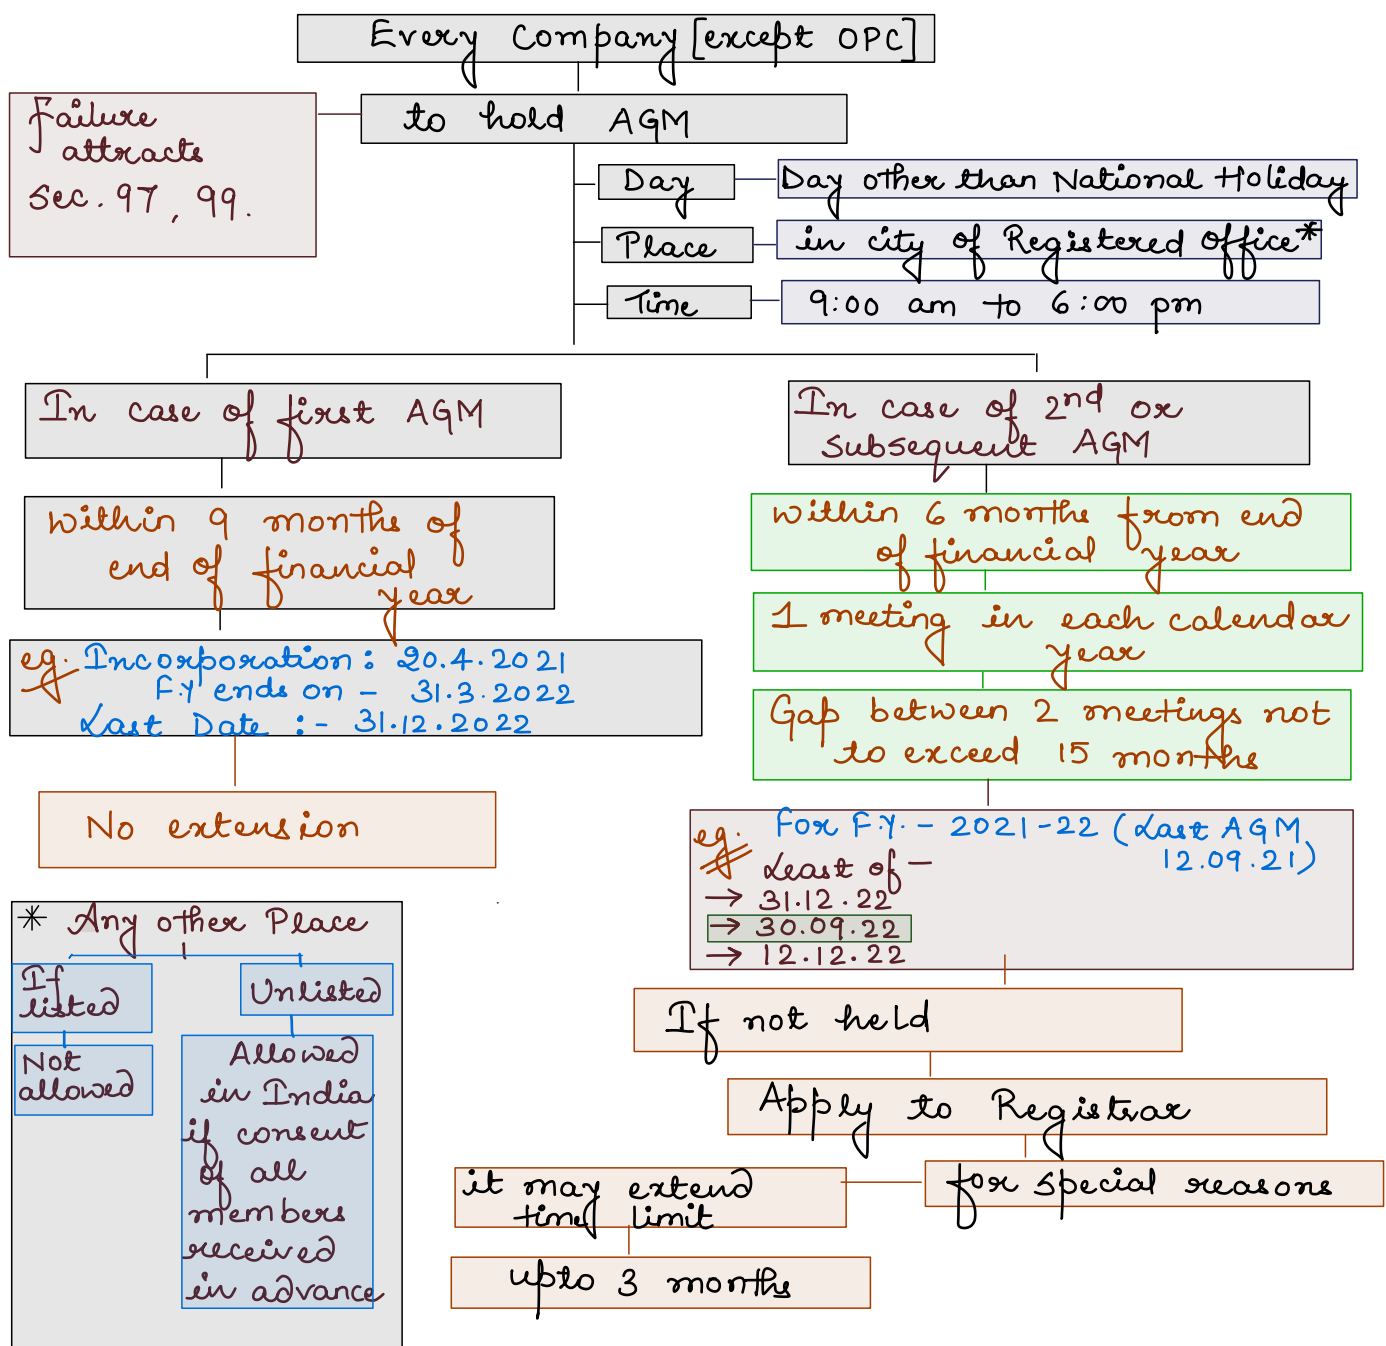 Every Company [except OPC]
to hold AGM
Failure
attracts
sec. 97, 99.
Day
Day other than National Holiday
Place
in city of Registered office*
Time
9:00 am to 6:00 pm
In case of first AGM
within 9 months of
end of financial
year
eg. Incorporation : 20.4.2021
F.Y ends on - 31.3.2022
Last Date :- 31.12.2022
No extension
In case of 2nd or
subsequent AGM
within 6 months from end
of financial year
1 meeting in each calendar
year
Gap between 2 meetings not
to exceed 15 months
eg. For F.Y. - 2021-22 (Last AGM
12.09.21)
Least of -
→ 31.12.22
→ 30.09.22
→ 12.12.22
If not held
Apply to Registrar
for special reasons
it may extend
time limit
upto 3 months
* Any other Place
If
listed
Not
allowed
Unlisted
Allowed
in India
if consent
of all
members
received
in advance